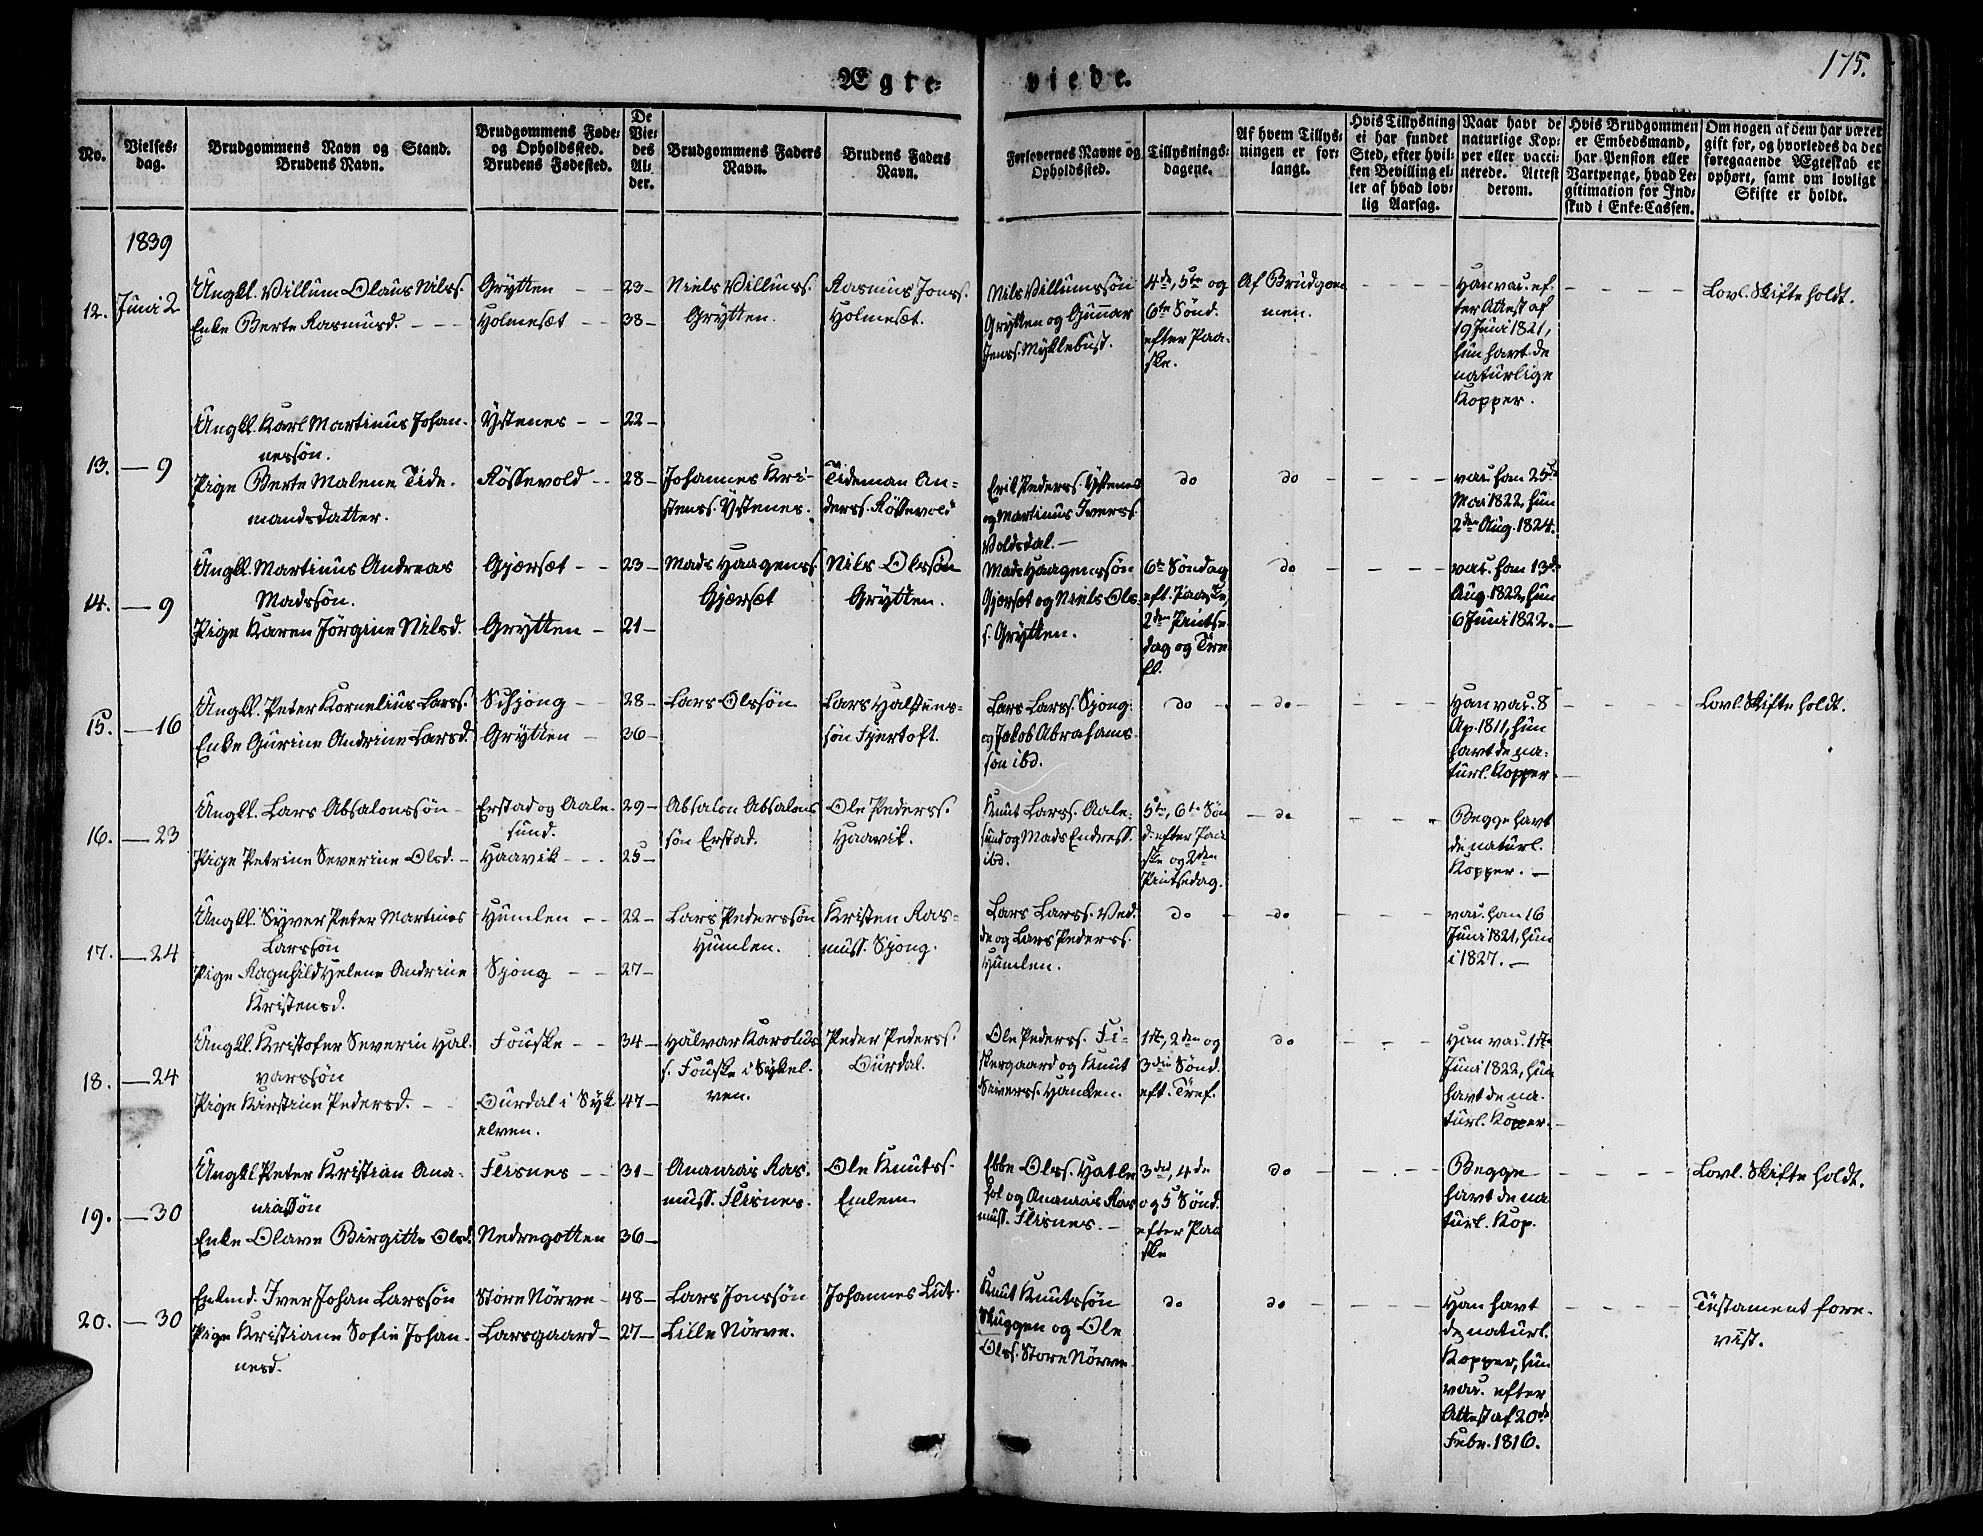 Ægte-
viede.
175.
No.
Vielses-
dag.
Brudgommens Navn og Stand.
Brudens Navn.
Brudgommens Føde-
og Opholdssted.
Brudens Fødested.
De
Vie-
des
Al-
der.
Brudgommens Faders
Navn.
Brudens Faders
Navn.
Forlovernes Navne og
Opholdssted.
Tillysnings-
dagene.
Af hvem Tillys-
ningen er for-
langt.
Hvis Tillysning
ei har fundet
Sted, efter hvil-
ken Bevilling el-
ler af hvad lov-
lig Aarsag.
Naar havt de
naturlige Kop-
per eller vacci-
nerede. Attest
derom.
Hvis Brudgommen
er Embedsmand,
har Pension eller
Vartpenge, hvad Le-
gitimation for Ind-
skud i Enke-Cassen.
Om nogen af dem har været
gift før, og hvorledes da det
foregaaende Ægteskab er
ophørt, samt om lovligt
Skifte er holdt.
1839
12. Juni 2
Ungkl. Villum Olaus Nilss.
Enke Berte Rasmusd.
Grytten
Holmesæt
23
38
Niels Villums.
Grytten.
Rasmus Jonss.
Holmesæt.
Nils Villumssøn
Grytten og Gunnar
Jenss. Myklebust.
4de, 5te og
6te Sønd.
efter Paa-
ske.
Af Brudgom-
men.
Han vac. ef-
ter Attest af
19 Juni 1821,
hun havt de
naturlige
Kopper.
Lovl. Skifte holdt.
13. — 9
Ungkl. Karl Martinus Johan-
nessøn.
Pige Berte Malene Tide-
mandsdatter.
Ystenes
Røssevold
22
28
Johannes Kri-
stenss. Ystenes.
Tideman An-
derss. Røssevold
Erik Pederss. Ystenes
og Martinus Iverss.
Voldsdal.
do
do
vac. han 25de
Mai 1822, hun
2den Aug. 1824.
14. — 9
Ungkl. Martinus Andreas
Madssøn.
Pige Karen Jørgine Nilsd.
Gjærsæt
Grytten
23
21
Mads Haagenss.
Gjærsæt
Nils Olssøn
Grytten.
Mads Haagenssøn
Gjærsæt og Niels Ols-
s. Grytten.
6te Søndag
eft. Paaske,
2den Pintse-
dag og Tre-
do
vac. han 13de
Aug. 1822, hun
6 Juni 1822.
15. — 16
Ungkl. Peter Kornelius Larss.
Enke Gurine Andrine Larsd.
Schjong
Grytten
28
36
Lars Olssøn
Lars Halstens-
søn Fjertoft.
Lars Larss. Sjong
og Jakob Abrahams-
søn ibd.
do
do
Han vac. 8
Ap. 1811, hun
havt de na-
turl. Kopper.
Lovl. Skifte holdt.
16. — 23
Ungkl. Lars Absalonssøn
Pige Petrine Severine Olsd.
Erstad og Aale-
sund.
Haavik
29
25
Absalon Absalons
søn Erstad.
Ole Pederss.
Haavik.
Knut Larss. Aale-
sund og Mads Endress.
ibd.
5te, 6te Søn
d. efter Paa
ske og 2den
Pintsedag.
do
Begge havt
de naturl.
Kopper.
17. — 24
Ungkl. Syver Peter Martines
Larssøn
Pige Ragnhild Helene Andrine
Kristensd.
Humlen
Sjong
22
27
Lars Pederssøn
Humlen.
Kristen Ras-
muss. Sjong.
Lars Larss. Ved-
de og Lars Pederss.
Humlen.
do
do
vac. han 16
Juni 1821, hun
i 1827.
18. — 24
Ungkl. Kristofer Severin Hal-
varssøn
Pige Kirstine Pedersd.
Fouske
Ourdal i Syk
elven.
34
47
Halvar Karolus
s. Fouske i Sykel-
ven.
Peder Pederss.
Ourdal.
Ole Pederss. Fi-
skergaard og Knut
Siverss. Hanken.
1ste, 2den og
3die Sønd.
eft. Tref.
do
Han vac. 1ste
Juni 1822, hun
havt de na-
turl. Kopper.
19. — 30
Ungkl. Peter Kristian Ana-
niassøn
Enke Olave Birgitte Olsd.
Flisnes
Nedregotten
31
36
Ananias Ras-
muss. Flisnes.
Ole Knutss.
Emlem
Ebbe Olss. Hatle-
hol og Ananias Ras
muss. Flisnes.
3die, 4de
og 5 Sønd.
efter Paa
ske
do
Begge
havt de na
turl. Kop.
Lovl. Skifte holdt.
20. — 30
Enkmd. Iver Johan Larssøn
Pige Kristiane Sofie Johan-
nesd.
Store Nørve
Larsgaard
48
27
Lars Jonssøn
Lille Nørve.
Johannes Lut-
Knut Knutssøn
Skuggen og Ole
Olss. Store Nørve.
do
do
Han havt
de naturl.
Kopper, hun
vac. efter
Attest af 20de
Febr. 1816.
Testament fore-
vist.